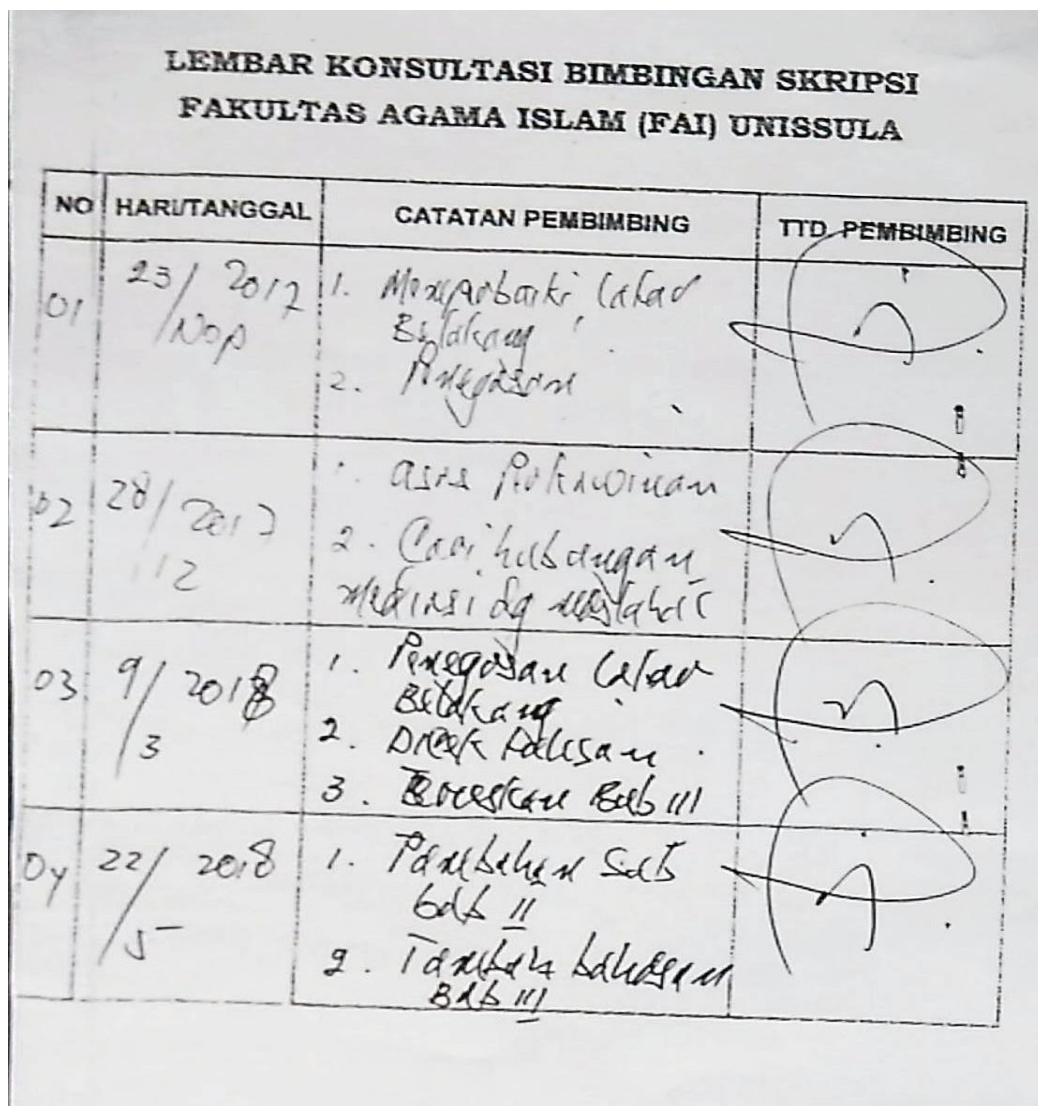 LEMBAR KONSULTASI BIMBINGAN SKRIPSI
FAKULTAS AGAMA ISLAM (FAI) UNISSULA
NO HARI/TANGGAL CATATAN PEMBIMBING TTD PEMBIMBING
01 23/Nop 2017 1. Memperbaiki Latar
Belakang
2. Penegasan
02 28/12 2017 1. asas Perkawinan
2. Cari hubungan
mediasi dg
03 9/3 2018 1. Penegasan Latar
Belakang
2. Dicek
3. Bab III
04 22/5 2018 1. Tambahan Sub
bab II
2. Tambah bahasan
Bab III